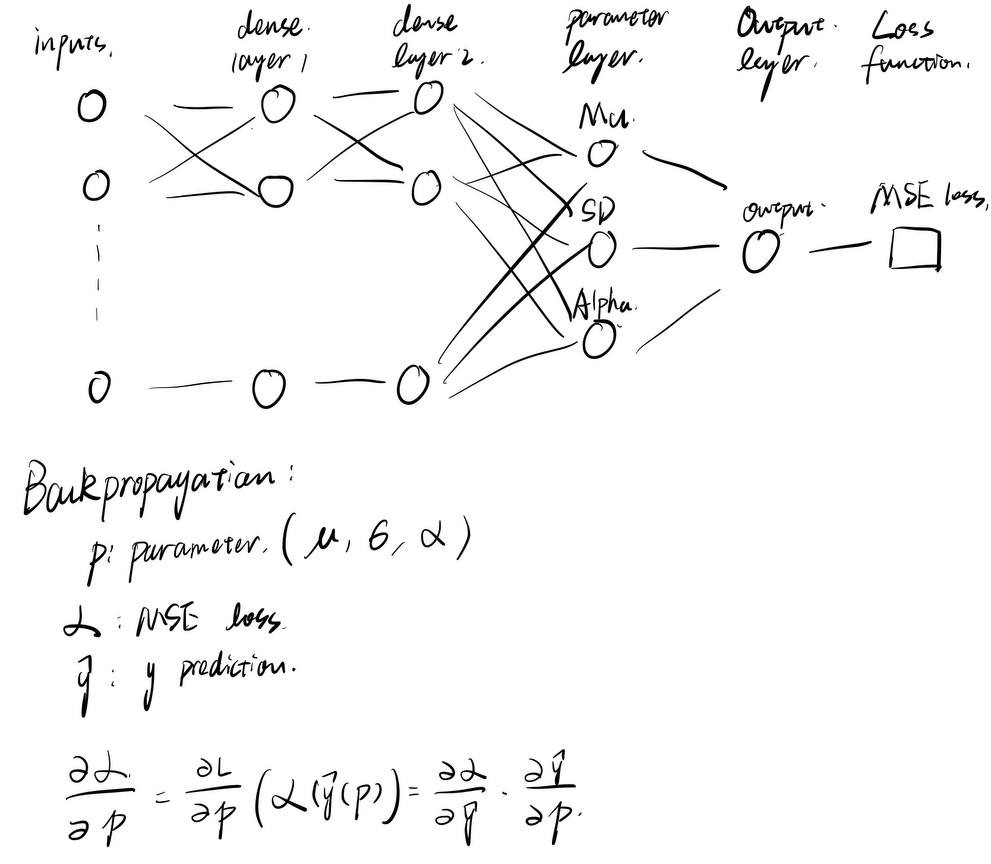 inputs.
dense layer 1
dense layer 2.
parameter layer.
Output layer.
Loss function.
Mu.
SD
Alpha.
output.
MSE loss.
Backpropagation:
p: parameter. (μ, σ, α)
ℒ : MSE loss.
ŷ : y prediction.
∂ℒ/∂p = ∂L/∂p (ℒ(ŷ(p)) = ∂ℒ/∂ŷ · ∂ŷ/∂p.